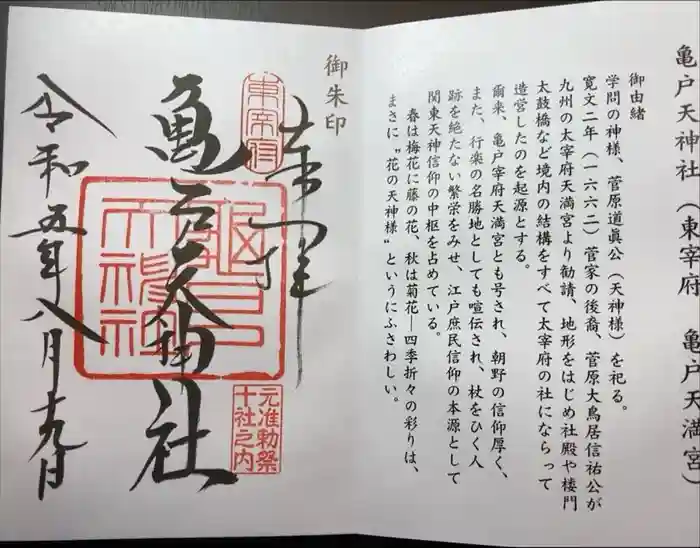 亀戸天神社（東宰府 亀戸天満宮）
御由緒
学問の神様、菅原道眞公（天神様）を祀る。
寛文二年（一六六二）菅家の後裔、菅原大鳥居信祐公が
九州の太宰府天満宮より勧請、地形をはじめ社殿や楼門
太鼓橋など境内の結構をすべて太宰府の社にならって
造営したのを起源とする。
爾来、亀戸宰府天満宮とも号され、朝野の信仰厚く、
また、行楽の名勝地としても喧伝され、杖をひく人
跡を絶たない繁栄をみせ、江戸庶民信仰の本源として
関東天神信仰の中枢を占めている。
春は梅花に藤の花、秋は菊花―四季折々の彩りは、
まさに〝花の天神様〟というにふさわしい。
御朱印
奉拝
東宰府
亀戸天神社
亀戸天神社
元准勅祭
十社之内
令和五年八月十九日